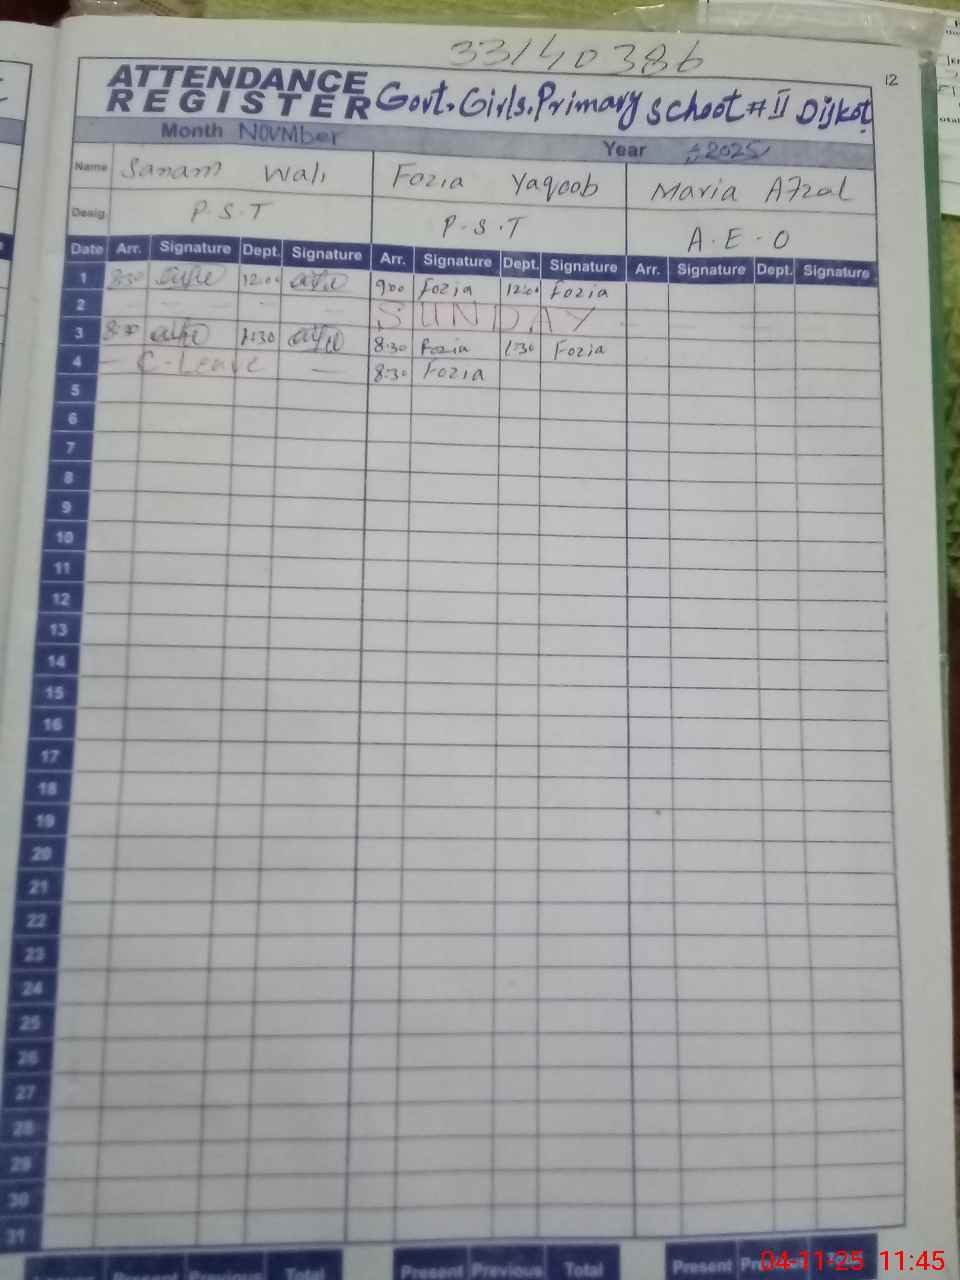 33140386
12
ATTENDANCE
REGISTER Govt. Girls. Primary School # II Dijkot
Month NOVMber Year 2025
Name Sanam Wali Fozia Yaqoob Maria Afzal
Desig. P.S.T P.S.T A.E.O
Date Arr. Signature Dept. Signature Arr. Signature Dept. Signature Arr. Signature Dept. Signature
1 8:30 12:00 9:00 Fozia 12:00 Fozia
2 SUNDAY
3 8:30 1:30 8:30 Fozia 1:30 Fozia
4 C-Leave 8:30 Fozia
5
6
7
8
9
10
11
12
13
14
15
16
17
18
19
20
21
22
23
24
25
26
27
28
29
30
31
Present Previous Total Present Previous Total Present
04-11-25 11:45